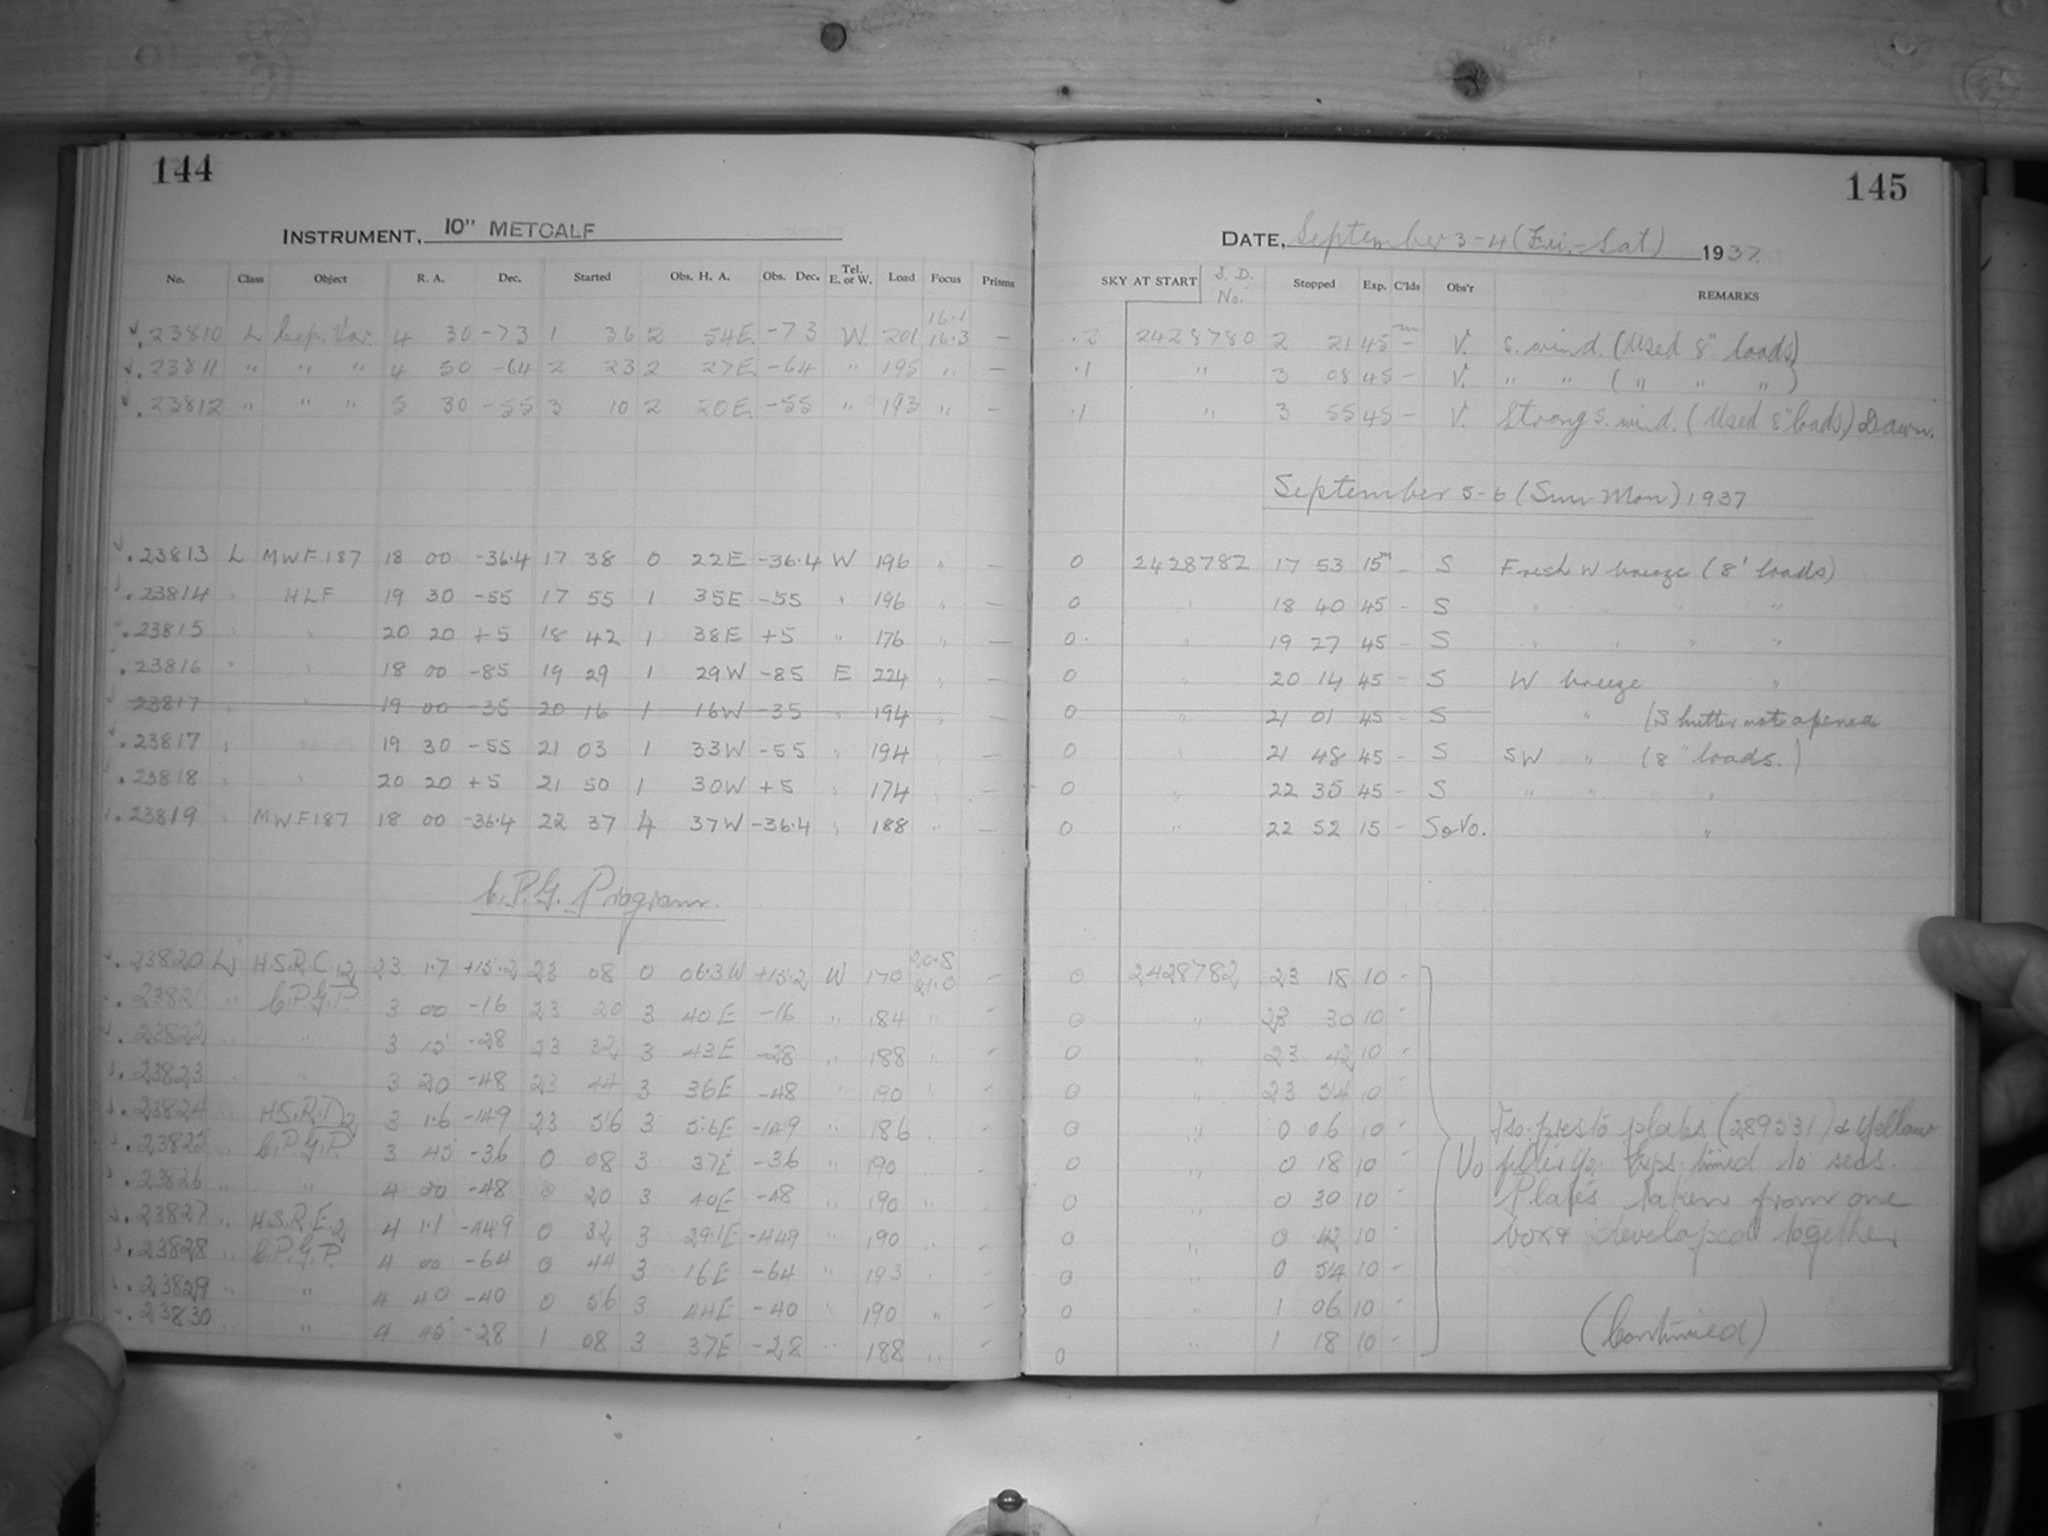 144
INSTRUMENT, 10" METCALF
No. Class Object R. A. Dec. Started Obs. H. A. Obs. Dec. Tel. E. or W. Load Focus Prisms
23810 L Cep. Var. 4 30 -73 1 36 2 54E -73 W. 201 16.1 16.3 —
23811 " " " 4 50 -64 2 23 2 27E -64 " 195 " —
23812 " " " 5 30 -55 3 10 2 20E -55 " 193 " —
.23813 L MWF187 18 00 -36.4 17 38 0 22E -36.4 W 196 " —
.23814 " HLF 19 30 -55 17 55 1 35E -55 " 196 " —
.23815 " " 20 20 +5 18 42 1 38E +5 " 176 " —
.23816 " " 18 00 -85 19 29 1 29W -85 E 224 " —
23817 " " 19 00 -35 20 16 1 16W -35 " 194 " —
.23817 " " 19 30 -55 21 03 1 33W -55 " 194 " —
.23818 " " 20 20 +5 21 50 1 30W +5 " 174 " —
.23819 " MWF187 18 00 -36.4 22 37 4 37W -36.4 " 188 " —
C.P.G. Program.
.23820 L H.S.R.C.12 23 1.7 +15.2 23 08 0 06.3W +15.2 W 170 20.8 21.0 —
.23821 " C.P.G.P. 3 00 -16 23 20 3 40E -16 " 184 " —
.23822 " " 3 15 -28 23 32 3 43E -28 " 188 " —
.23823 " " 3 20 -48 23 44 3 36E -48 " 190 " —
.23824 " H.S.R.D2 3 1.6 -14.9 23 56 3 5.6E -14.9 " 186 " —
.23825 " C.P.G.P. 3 45 -36 0 08 3 37E -36 " 190 " —
.23826 " " 4 00 -48 0 20 3 40E -48 " 190 " —
.23827 " H.S.R.E.2 4 1.1 -44.9 0 32 3 29.1E -44.9 " 190 " —
.23828 " C.P.G.P. 4 00 -64 0 44 3 16E -64 " 193 " —
.23829 " " 4 40 -40 0 56 3 44E -40 " 190 " —
.23830 " " 4 45 -28 1 08 3 37E -28 " 188 " —
145
DATE, September 3-4 (Fri.-Sat) 1937.
SKY AT START J. D. No. Stopped Exp. C'lds Obs'r REMARKS
.2 2428780 2 21 45m — V. S. wind. (Used 8" loads)
.1 " 3 08 45 — V. " " ( " " " )
.1 " 3 55 45 — V. Strong S. wind. (Used 8" loads) Dawn.
September 5-6 (Sun-Mon) 1937
0 2428782 17 53 15m — S Fresh W breeze (8' loads)
0 " 18 40 45 - S " " " "
0 " 19 27 45 - S " " " "
0 " 20 14 45 - S W breeze "
0 " 21 01 45 - S " (Shutter not opened
0 " 21 48 45 - S SW " (8" loads.)
0 " 22 35 45 - S " " "
0 " 22 52 15 - S&Vo. "
0 2428782 23 18 10 -
0 " 23 30 10 -
0 " 23 42 10 -
0 " 23 54 10 -
0 " 0 06 10 - Iso-presto plates (289531) & Yellow
0 " 0 18 10 - Vo filter Exps. timed to secs.
0 " 0 30 10 - Plates taken from one
0 " 0 42 10 - box & developed together
0 " 0 54 10 -
0 " 1 06 10 -
0 " 1 18 10 - (Continued)